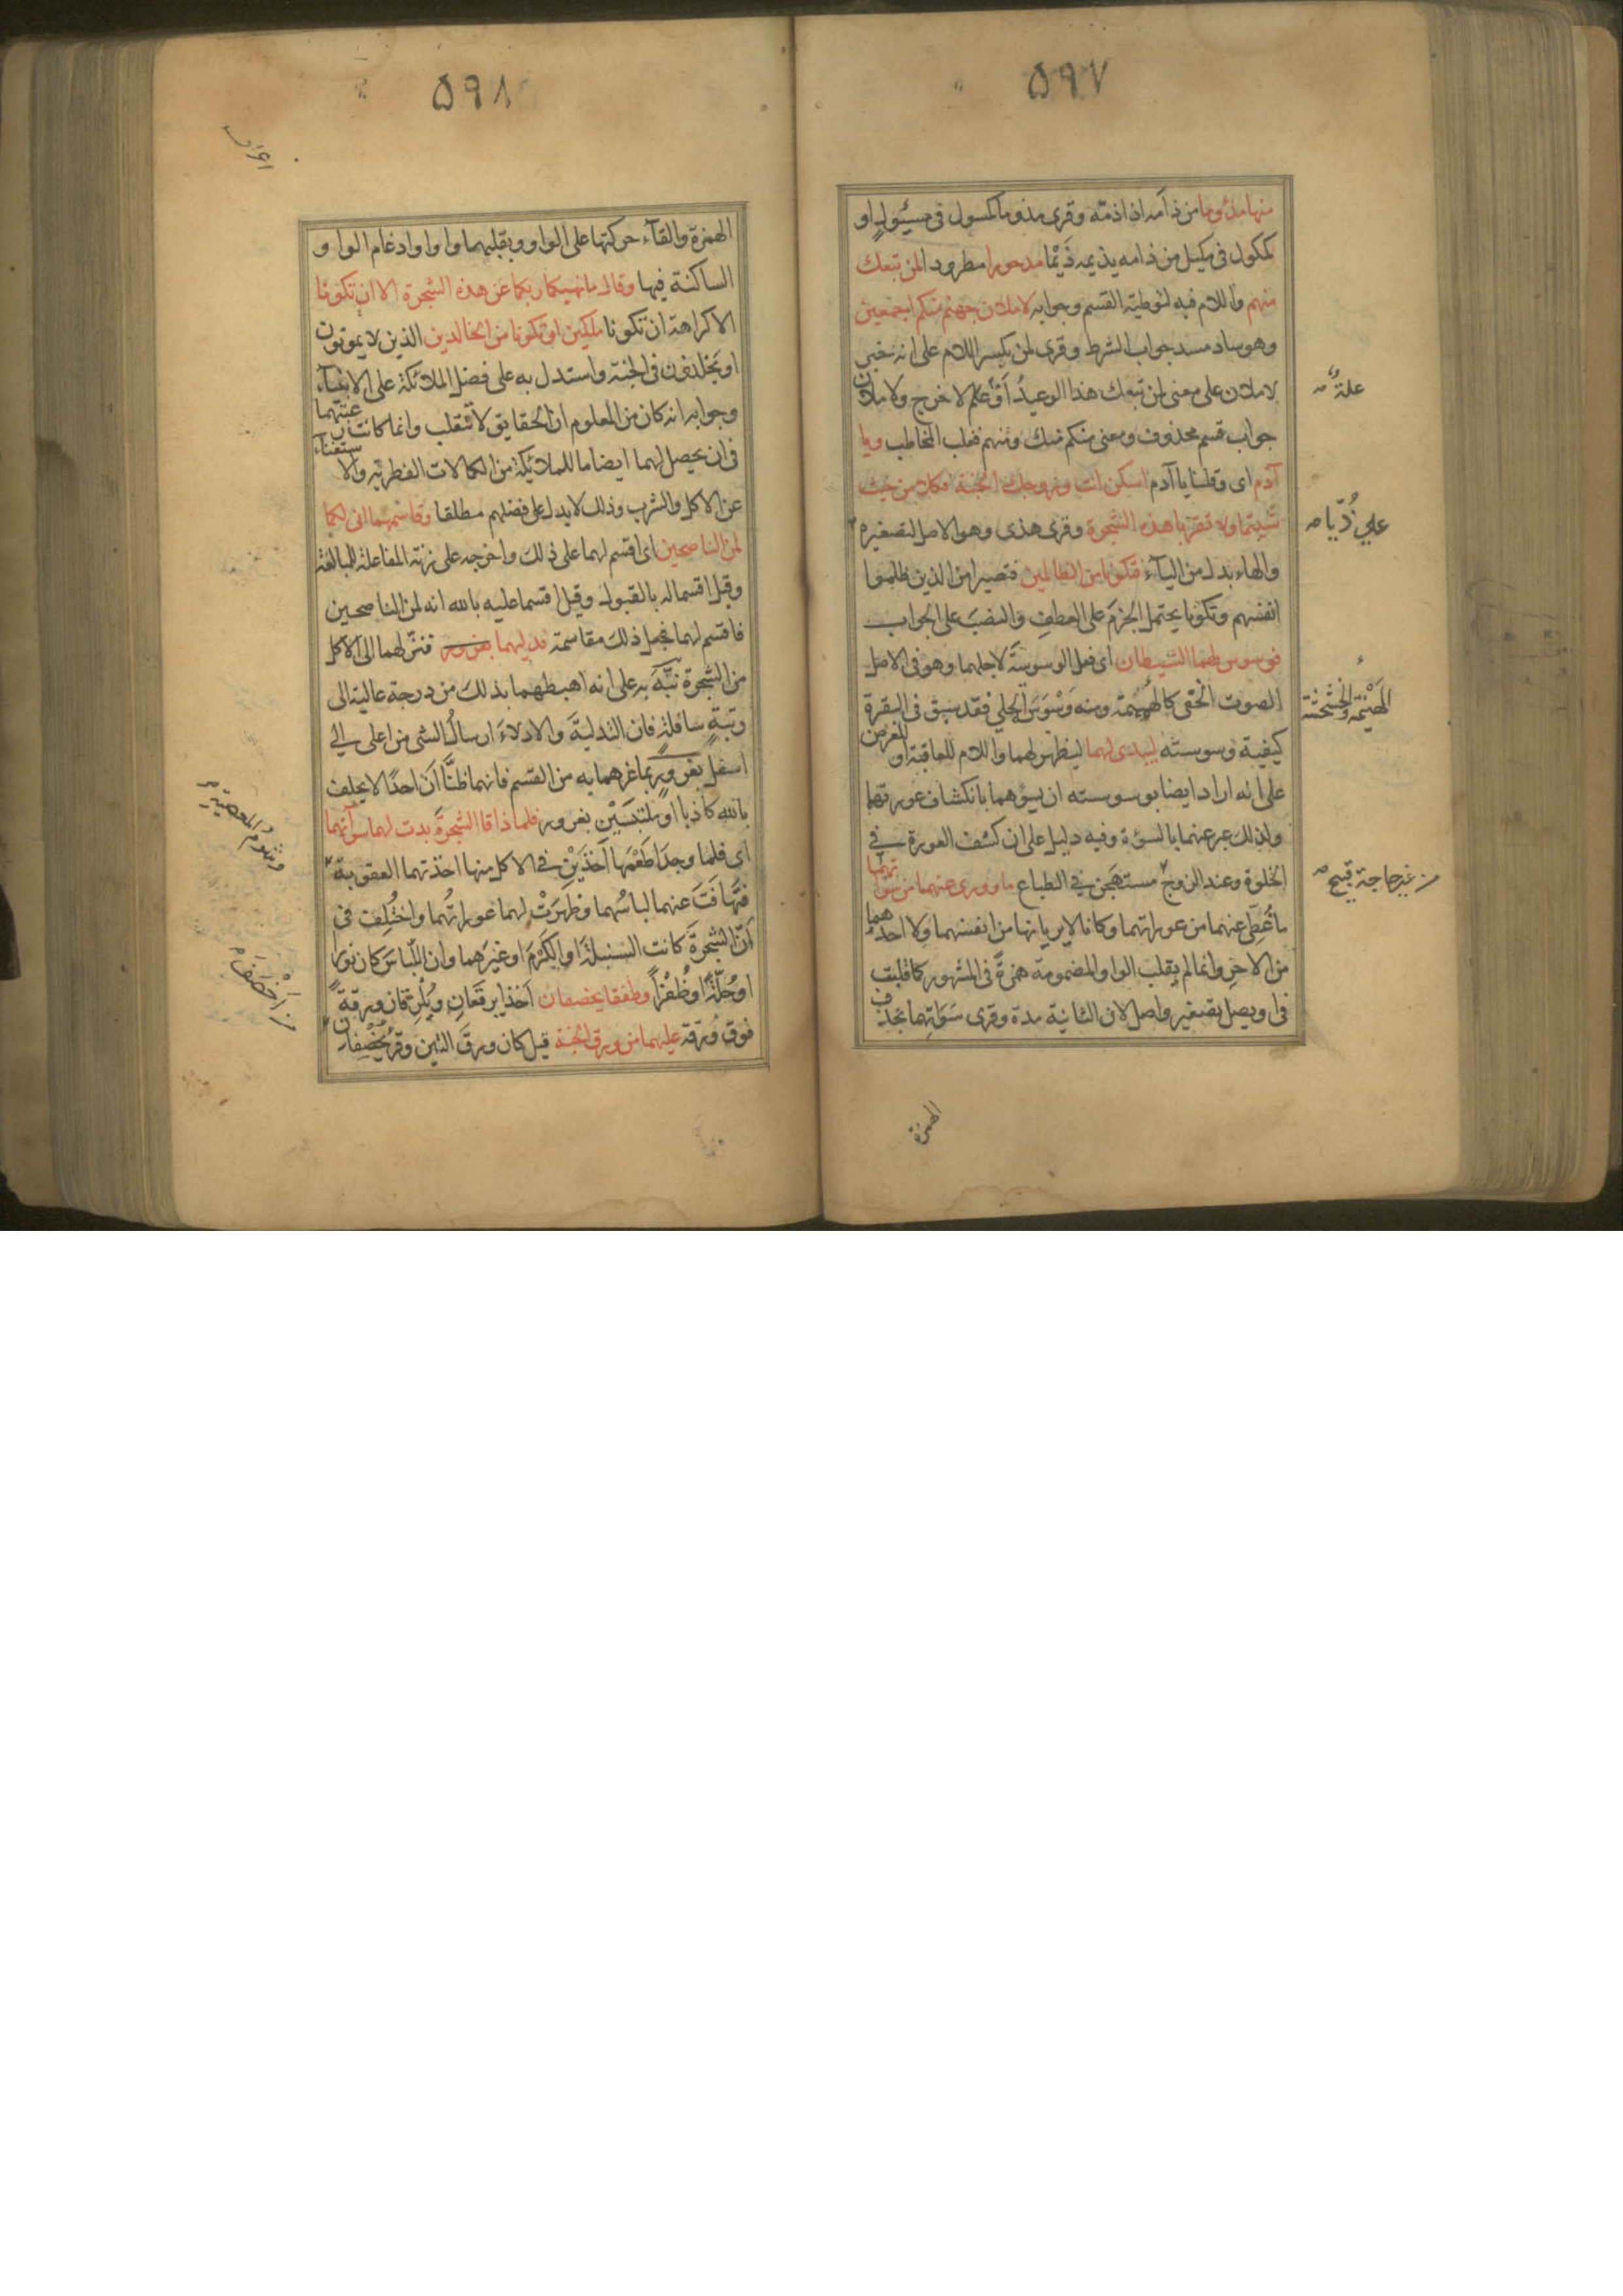 ٥٩٧
منها مذؤما من ذأمه اذا ذمّه وقرئ مذوما كمسول في مسئول او
كمكول في مكيل من ذامه يذيمه ذَيْمًا مدحورا مطرودا لمن تبعك
منهم واللام فيه لتوطية القسم وجوابه لاملان جهنم منكم اجمعين
وهو ساد مسد جواب الشرط وقرئ لمن بكسر اللام على انه خبر
لاملان على معنى لمن تبعك هذا الوعيدُ او علة لاخرج ولاملان
جواب قسم محذوف ومعنى منكم منك ومنهم فغلب المخاطب ويا
آدم اى وقلنا يا آدم اسكن انت وزوجك الجنة فكلا من حيث
شيتما ولا تقربا هذه الشجرة وقرئ هذى وهو الاصل لتصغيره
والهاء بدل من الياء فتكونا من الظالمين فتصيرا من الذين ظلموا
انفسهم وتكونا يحتمل الجزمَ على العطفِ والنصبَ على الجواب
فوسوس لهما الشيطان اى فعل الوسوسةَ لاجلهما وهو في الاصل
الصوت الخفى كالهيمنة ومنه وَسْوَسَ الحلي فقد سبق في البقرة
كيفية وسوسته ليبدى لهما ليظهر لهما واللام للعاقبة او للغرض
على انه اراد ايضا بوسوسته ان يسؤهما بانكشاف عورتهما
ولذلك عبر عنهما بالسؤة وفيه دليل على ان كشف العورة في
الخلوة وعند الزوج مستهجن في الطباع ما وورى عنهما من سوآتهما
ما غُطِّى عنهما من عوراتهما وكانا لا يريانها من انفسهما ولا احدهما
من الاخر وانما لم يقلب الواو المضمومة همزةً في المشهور كما قلبت
في اويصل تصغير واصل لان الثانية مدة وقرئ سَوَاتِهما بحذف
علة
علي ذُيّا
الهَيْنمة والخشخشة
من غير حاجة قبيح
الهمزة
٥٩٨
الهمزة والقآء حركتها على الواو وبقلبهما واوا وادغام الواو
الساكنة فيها وقال ما نهيكما ربكما عن هذه الشجرة الا ان تكونا
الا كراهة ان تكونا ملكين او تكونا من الخالدين الذين لا يموتون
او يخلدون في الجنة واستدل به على فضل الملائكة على الانبياء
وجوابه انه كان من المعلوم ان الحقايق لا تنقلب وانما كانت رغبتهما
في ان يحصل لهما ايضا ما للملائكة من الكمالات الفطرية والاستغناء
عن الاكل والشرب وذلك لا يدل على فضلهم مطلقا وقاسمهما انى لكما
لمن الناصحين اى اقسم لهما على ذلك واخرجه على زنة المفاعلة للمبالغة
وقيل اقسما له بالقبول وقيل اقسما عليه بالله انه لمن الناصحين
فاقسم لهما فجعل ذلك مقاسمة فدليهما بغرور فنزلهما الى الاكل
من الشجرة نبَّهَ به على انه اهبطهما بذلك من درجة عالية الى
رتبةٍ سافلةٍ فان التدليةَ والادلاءَ ارسالُ الشى من اعلى الى
اسفل بغرورٍ بما غرهما به من القسم فانهما ظنَّا أن احدًا لا يحلف
بالله كاذبا او ملتبسَيْن بغرور فلما ذاقا الشجرة بدت لهما سوآتهما
اى فلما وجدا طَعْمَها آخذَيْنِ في الاكل منها اخذتهما العقوبة
فتهافَتَ عنهما لباسُهما وظهرَتْ لهما عوراتُهما واختُلِف في
أنّ الشجرةَ كانت السنبلةَ او الكَرْمَ او غيرَهما وان اللباسَ كان نورا
او حُلّةً او ظُفْراً وطفقا يخصفان اخذا يرقعَانِ ويُلْزِقان ورقة
فوق ورقة عليهما من ورق الجنة قيل كان ورقَ التين وقرئ يُخْصِفان
وشؤم المعصية
من اَخْصَفَ